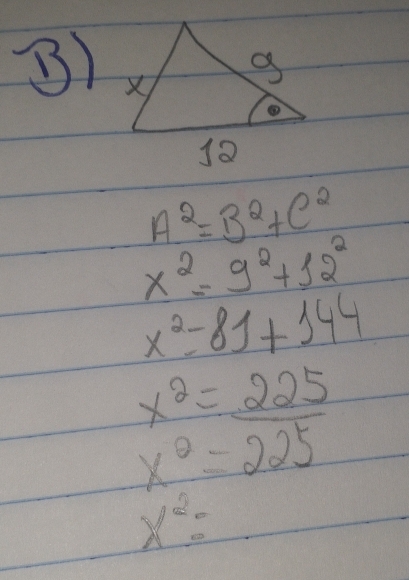 B)
x 9
12
A² = B² + C²
x² = 9² + 12²
x² = 81 + 144
x² = 225
x² = 225
x² =